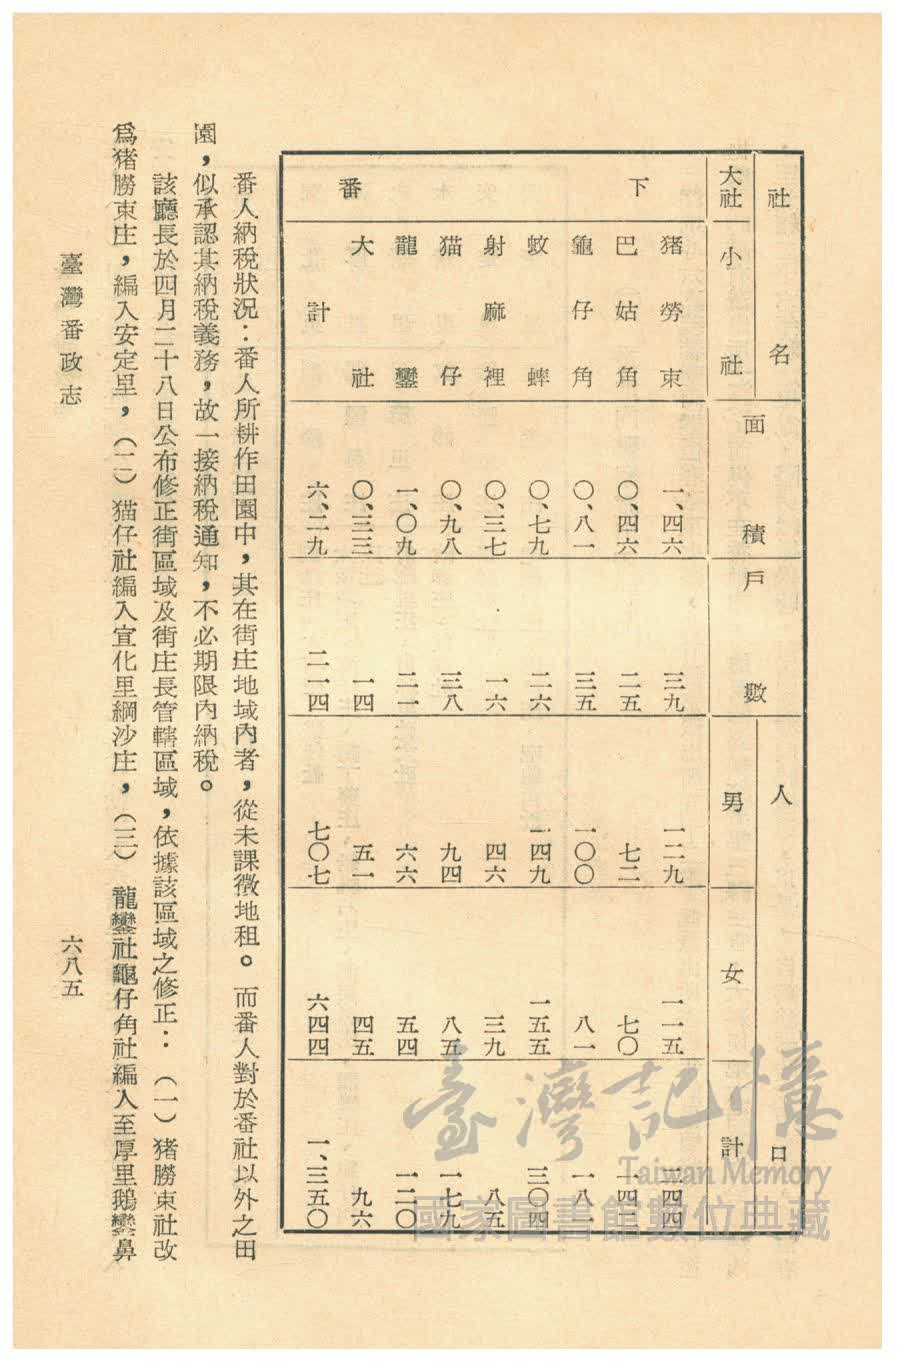 社名 面積 戶數 人口
大社 小社 男 女 計
下番
猪勞束 一、四六 三九 一二九 一一五 二四四
巴姑角 〇、四六 二五 七二 七〇 一四二
龜仔角 〇、八一 三五 一〇〇 八一 一八一
蚊蟀 〇、七九 二六 一四九 一五五 三〇四
射麻裡 〇、三七 一六 四六 三九 八五
猫仔 〇、九八 三八 九四 八五 一七九
龍鑾 一、〇九 二一 六六 五四 一二〇
大社 〇、三三 一四 五一 四五 九六
計 六、二九 二一四 七〇七 六四四 一、三五〇
番人納稅狀況：番人所耕作田園中，其在街庄地域內者，從未課徵地租。而番人對於番社以外之田
園，似承認其納稅義務，故一接納稅通知，不必期限內納稅。
該廳長於四月二十八日公布修正街區域及街庄長管轄區域，依據該區域之修正：（一）猪朥束社改
爲猪朥束庄，編入安定里，（二）猫仔社編入宣化里綱沙庄，（三）龍鑾社龜仔角社編入至厚里鵝鑾鼻
臺灣番政志
六八五
臺灣記憶
Taiwan Memory
國家圖書館數位典藏